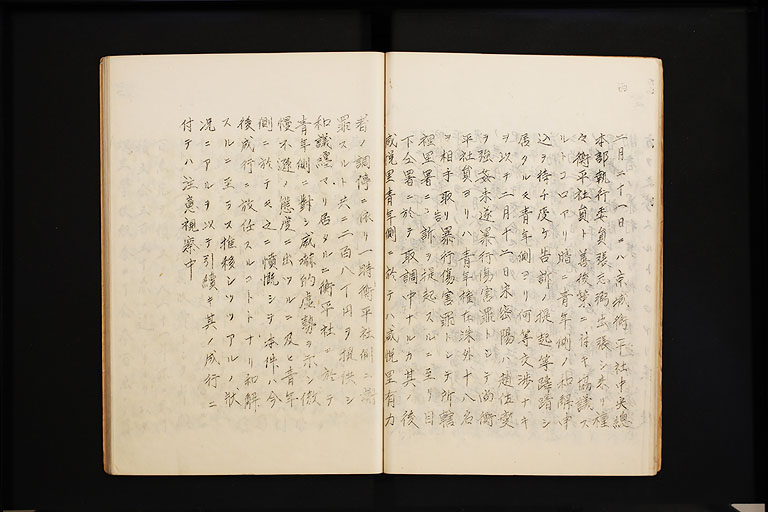 二月二十一日ニハ京城衡平社中央總
本部執行委員張志弼出張シ来リ種
々衡平社員ト善後策ニ付キ協議ス
ルトコロアリ暗ニ青年側ノ和解申
込ヲ待チ度ク告訴ノ提起等躊躇シ
居タルモ青年側ヨリ何等交渉ナキ
ヲ以テ二月十二日宋密陽ハ趙佐奕
ヲ強姦未遂暴行傷害罪トシテ尚衡
平社員ヨリハ青年権在洙外十八名
ヲ相手取リ暴行傷害罪トシテ所轄
裡里署ニ告訴ヲ提起スルニ至リ目
下仝署ニ於テ取調中ナルカ其ノ後
咸悦里青年側ニ於テハ咸悦里有力
者ノ調停ニ依リ一時衡平社側ニ謝
罪スルト共ニ二百八十円ヲ提供シ
和議纏マリ居タルニ衡平社ニ於テ
青年側ニ對シ威嚇的虚勢ヲ示シ傲
慢不遜ノ態度ニ出ツルニ及ヒ青年
側ニ於テモ之ニ憤慨シテ本件ハ今
後成行ニ放任スルコトトナリ和解
スルニ至ラス推移シツツアルノ状
況ニアルヲ以テ引續キ其ノ成行ニ
付テハ注意視察中